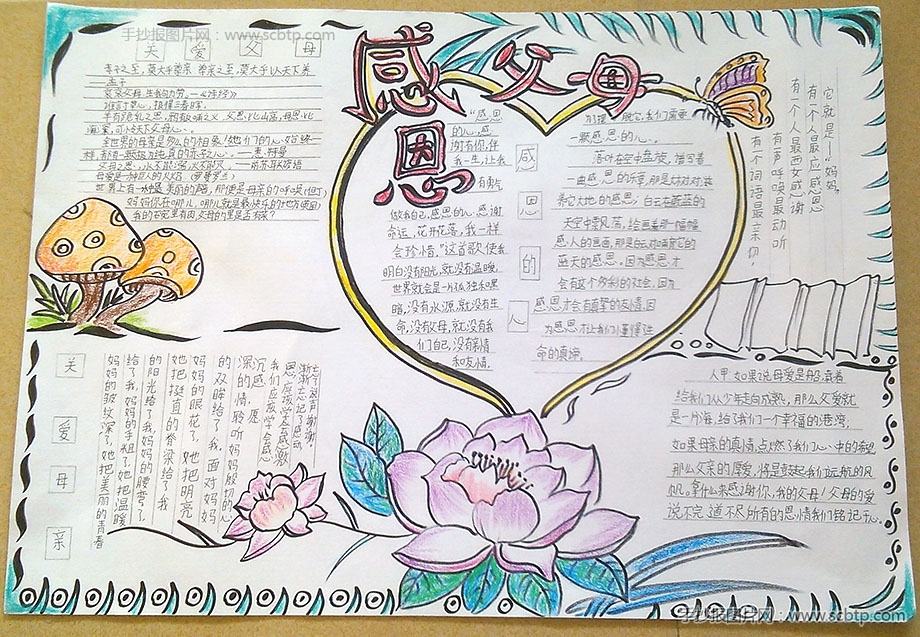 手抄报图片网：www.scbtp.com
感恩父母
关爱父母
孝子之至，莫大乎尊亲 尊亲之至，莫大乎以天下养
孟子
哀哀父母，生我劬劳。—《诗经》
谁言寸草心，报得三春晖。
母爱是一种巨人的火焰
世界上有一种最美丽的声音，那便是母亲的呼唤(但丁)
妈妈你在哪儿，哪儿就是最快乐的地方(英国)
它就是—"妈妈，
有一个人最应感恩
有一个人最西女感谢
有一声呼唤最动听
有一个词语最亲切，
感恩的人
"感恩
的心，感
谢有你，伴
我一生，让我
有勇气
做我自己，感恩的心，感谢
命运，花开花落，我一样
会珍惜。"这首歌，使我
明白没有阳光，就没有温暖，
世界就会是一片孤独和黑
暗，没有水源，就没有生
命，没有父母，就没有我
们自己，没有亲情
和友情，
一颗感恩的心。
落叶在空中盘旋，谱写着
一曲感恩的乐章，那是大树对滋
养它大地的感恩；白云在蔚蓝的
天空中飘荡，绘画着那一幅幅
感人的画面，那是白云对哺育它的
蓝天的感恩。因为感恩才
会有这个多彩的社会，因为
感恩才会有真挚的友情，因
为感恩才让我们懂得生
命的真谛。
关爱母亲
忘记了说声谢谢，
渐渐忘记了感动
恩，应该学会感激
我们应该学会感
沉感 愿
深的情，聆听妈妈殷切的心
的双眸给了我，面对妈妈
妈妈的眼花了，她把明亮
她把挺直的脊梁给了我
的阳光给了我，妈妈的腰弯了，
给了我，妈妈的手粗了，她把温暖
妈妈的皱纹深了，她把美丽的青春
人甲：如果说母爱是船，载着
给我们从少年走向成熟，那么父爱就
是一片海，给了我们一个幸福的港湾，
如果母亲的真情，点燃了我们心中的希望
那么父亲的厚爱，将是鼓起我们远航的风
帆。拿什么来感谢你，我的父母！父母的爱
说不完，道不尽，所有的恩情我们铭记于心。
手抄报图片网：www.scbtp.com